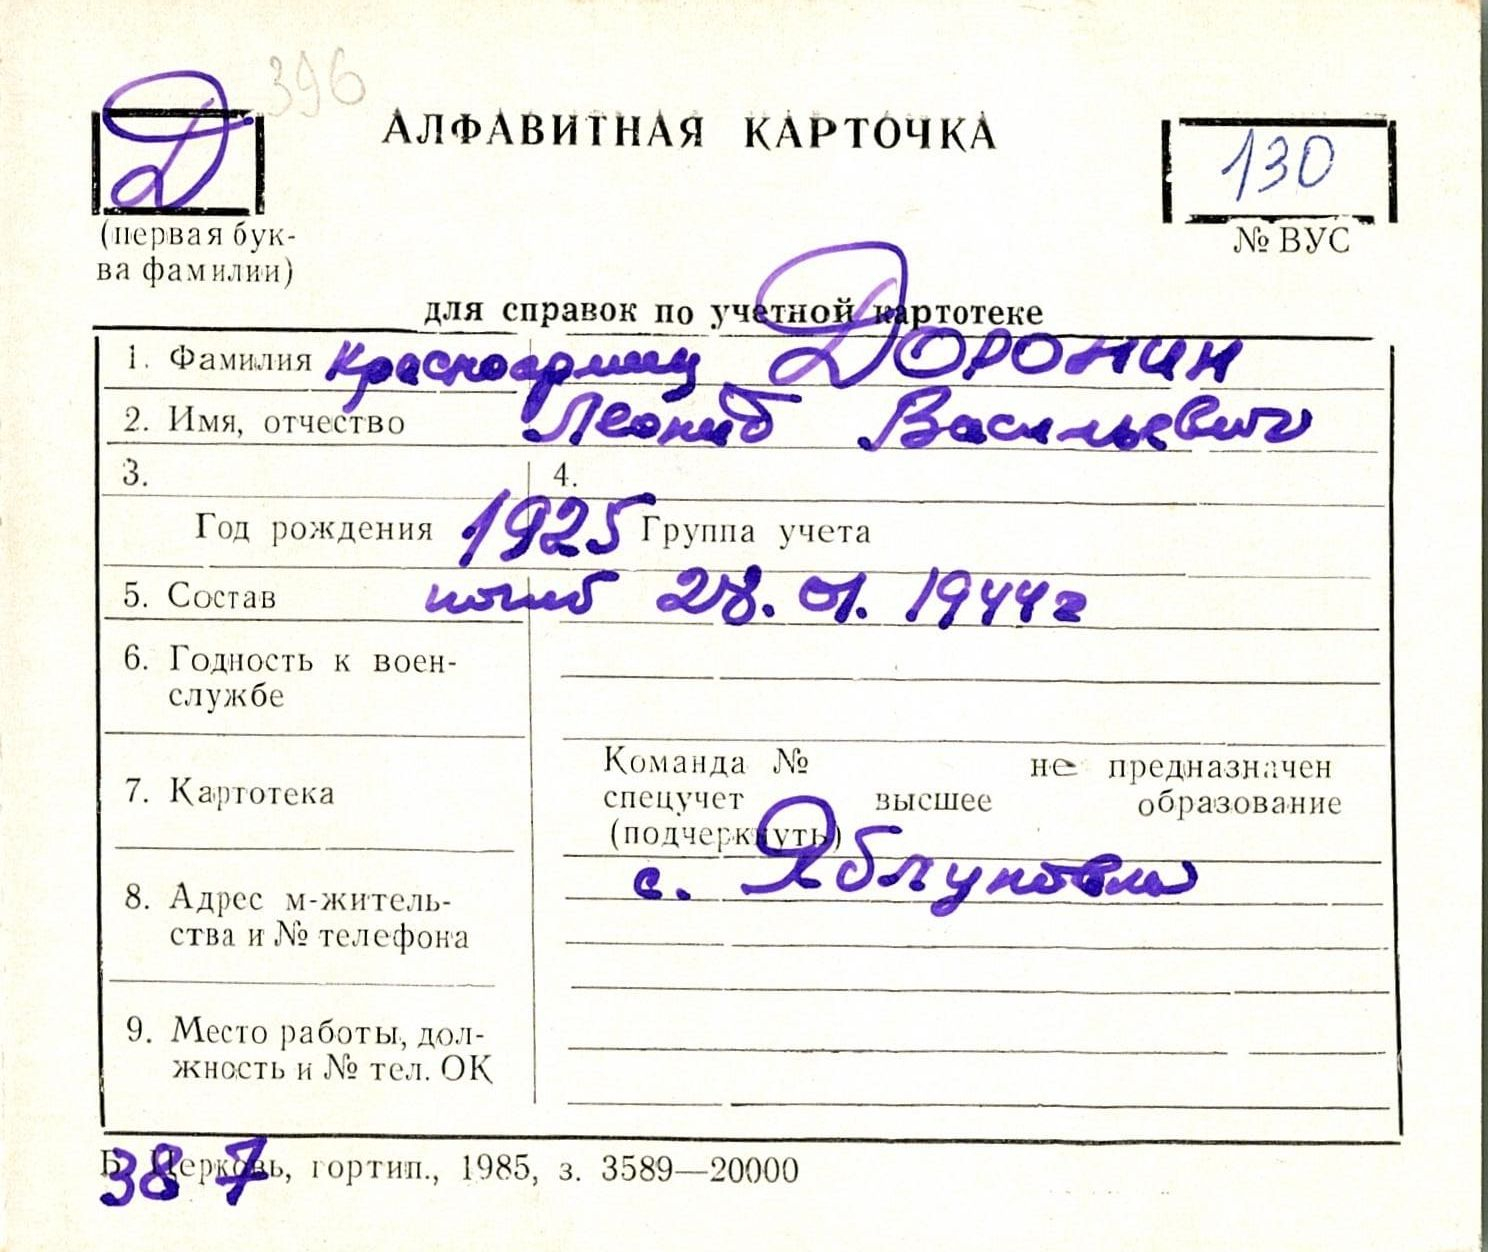 396
Д
АЛФАВИТНАЯ КАРТОЧКА
130
(первая бук-
ва фамилии)
№ ВУС
для справок по учетной картотеке
1. Фамилия красноармеец Доронин
2. Имя, отчество Леонид Васильевич
3. 4.
Год рождения 1925 Группа учета
5. Состав погиб 28. 01. 1944 г
6. Годность к воен-
службе
Команда № не предназначен
7. Картотека
спецучет высшее образование
(подчеркнуть)
8. Адрес м-житель-
ства и № телефона
с. Яблуновка
9. Место работы, дол-
жность и № тел. ОК
Б. Церковь, гортип., 1985, з. 3589—20000
387